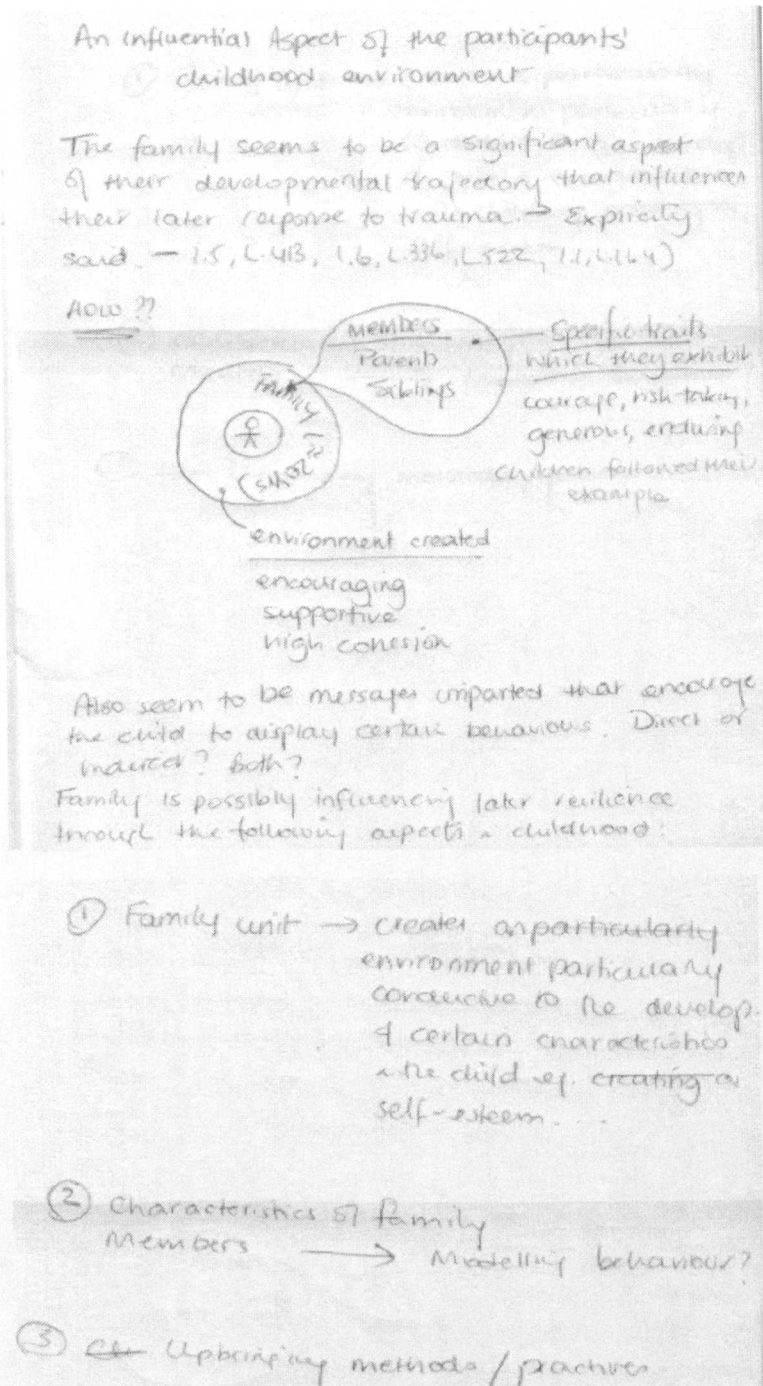 An influential Aspect of the participants'
childhood environment
The family seems to be a significant aspect
of their developmental trajectory that influences
their later response to trauma. → Explicitly
said. — 1.5, L.413, 1.6, L.336, L522, 1.1, L.164)
HOW ??
members
Parents
Siblings
Specific traits
which they exhibit
courage, risk-taking,
generous, enduring
children followed their
example
Family (≈ 20yrs)
environment created
encouraging
supportive
high cohesion
Also seem to be messages imparted that encourage
the child to display certain behaviours. Direct or
indirect? Both?
Family is possibly influencing later resilience
through the following aspects in childhood:
① Family unit → creates an particularly
environment particularly
conducive to the develop.
of certain characteristics
in the child eg. creating a
self-esteem....
② Characteristics of family
Members → Modelling behaviour?
③ Upbringing methods / practices